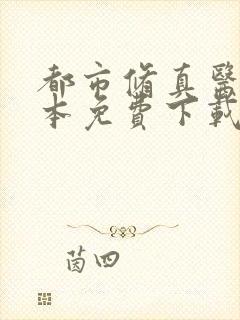 都市脩真醫
本免費下載
茵四